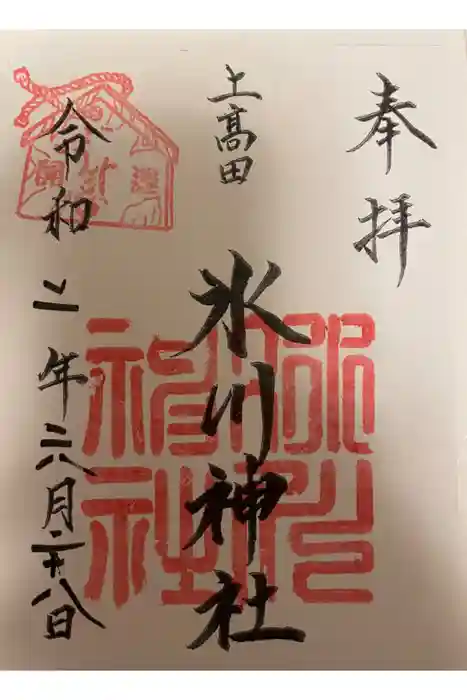 奉拝
上髙田
氷川神社
令和二年六月二十八日
氷川
神社